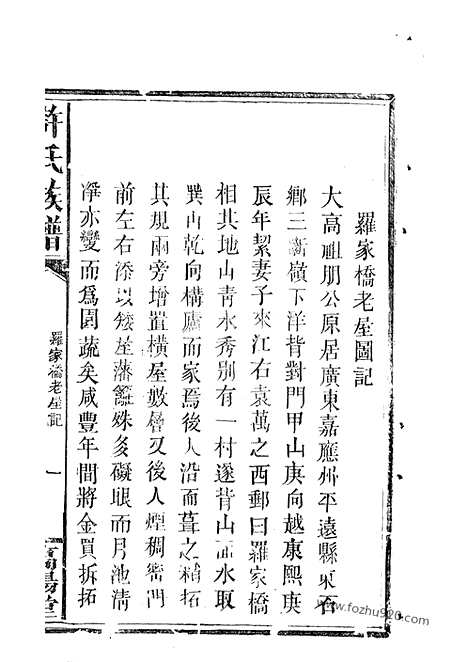 羅家橋老屋圖記
大高祖朋公原居廣東嘉應州平遠縣東石
鄉三斷嶺下洋背對門甲山庚向越康熙庚
辰年絜妻子來江右袁萬之西鄙曰羅家橋
相其地山青水秀別有一村遂背山面水取
巽山乾向構廬而家焉後人沿而葺之稍拓
其規兩旁增置橫屋數層又後人煙稠密門
前左右添以矮屋藩籬殊多礙眼而月池清
潔亦變而爲園蔬矣咸豐年間將金買拆拓
許氏族譜
羅家橋老屋記
一
高陽堂
www.fozhu920.com